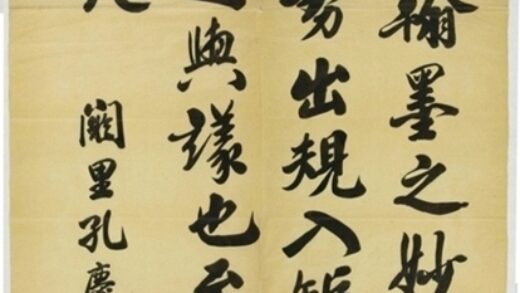 翰墨之妙
出規入矩
與議也
闕里孔慶